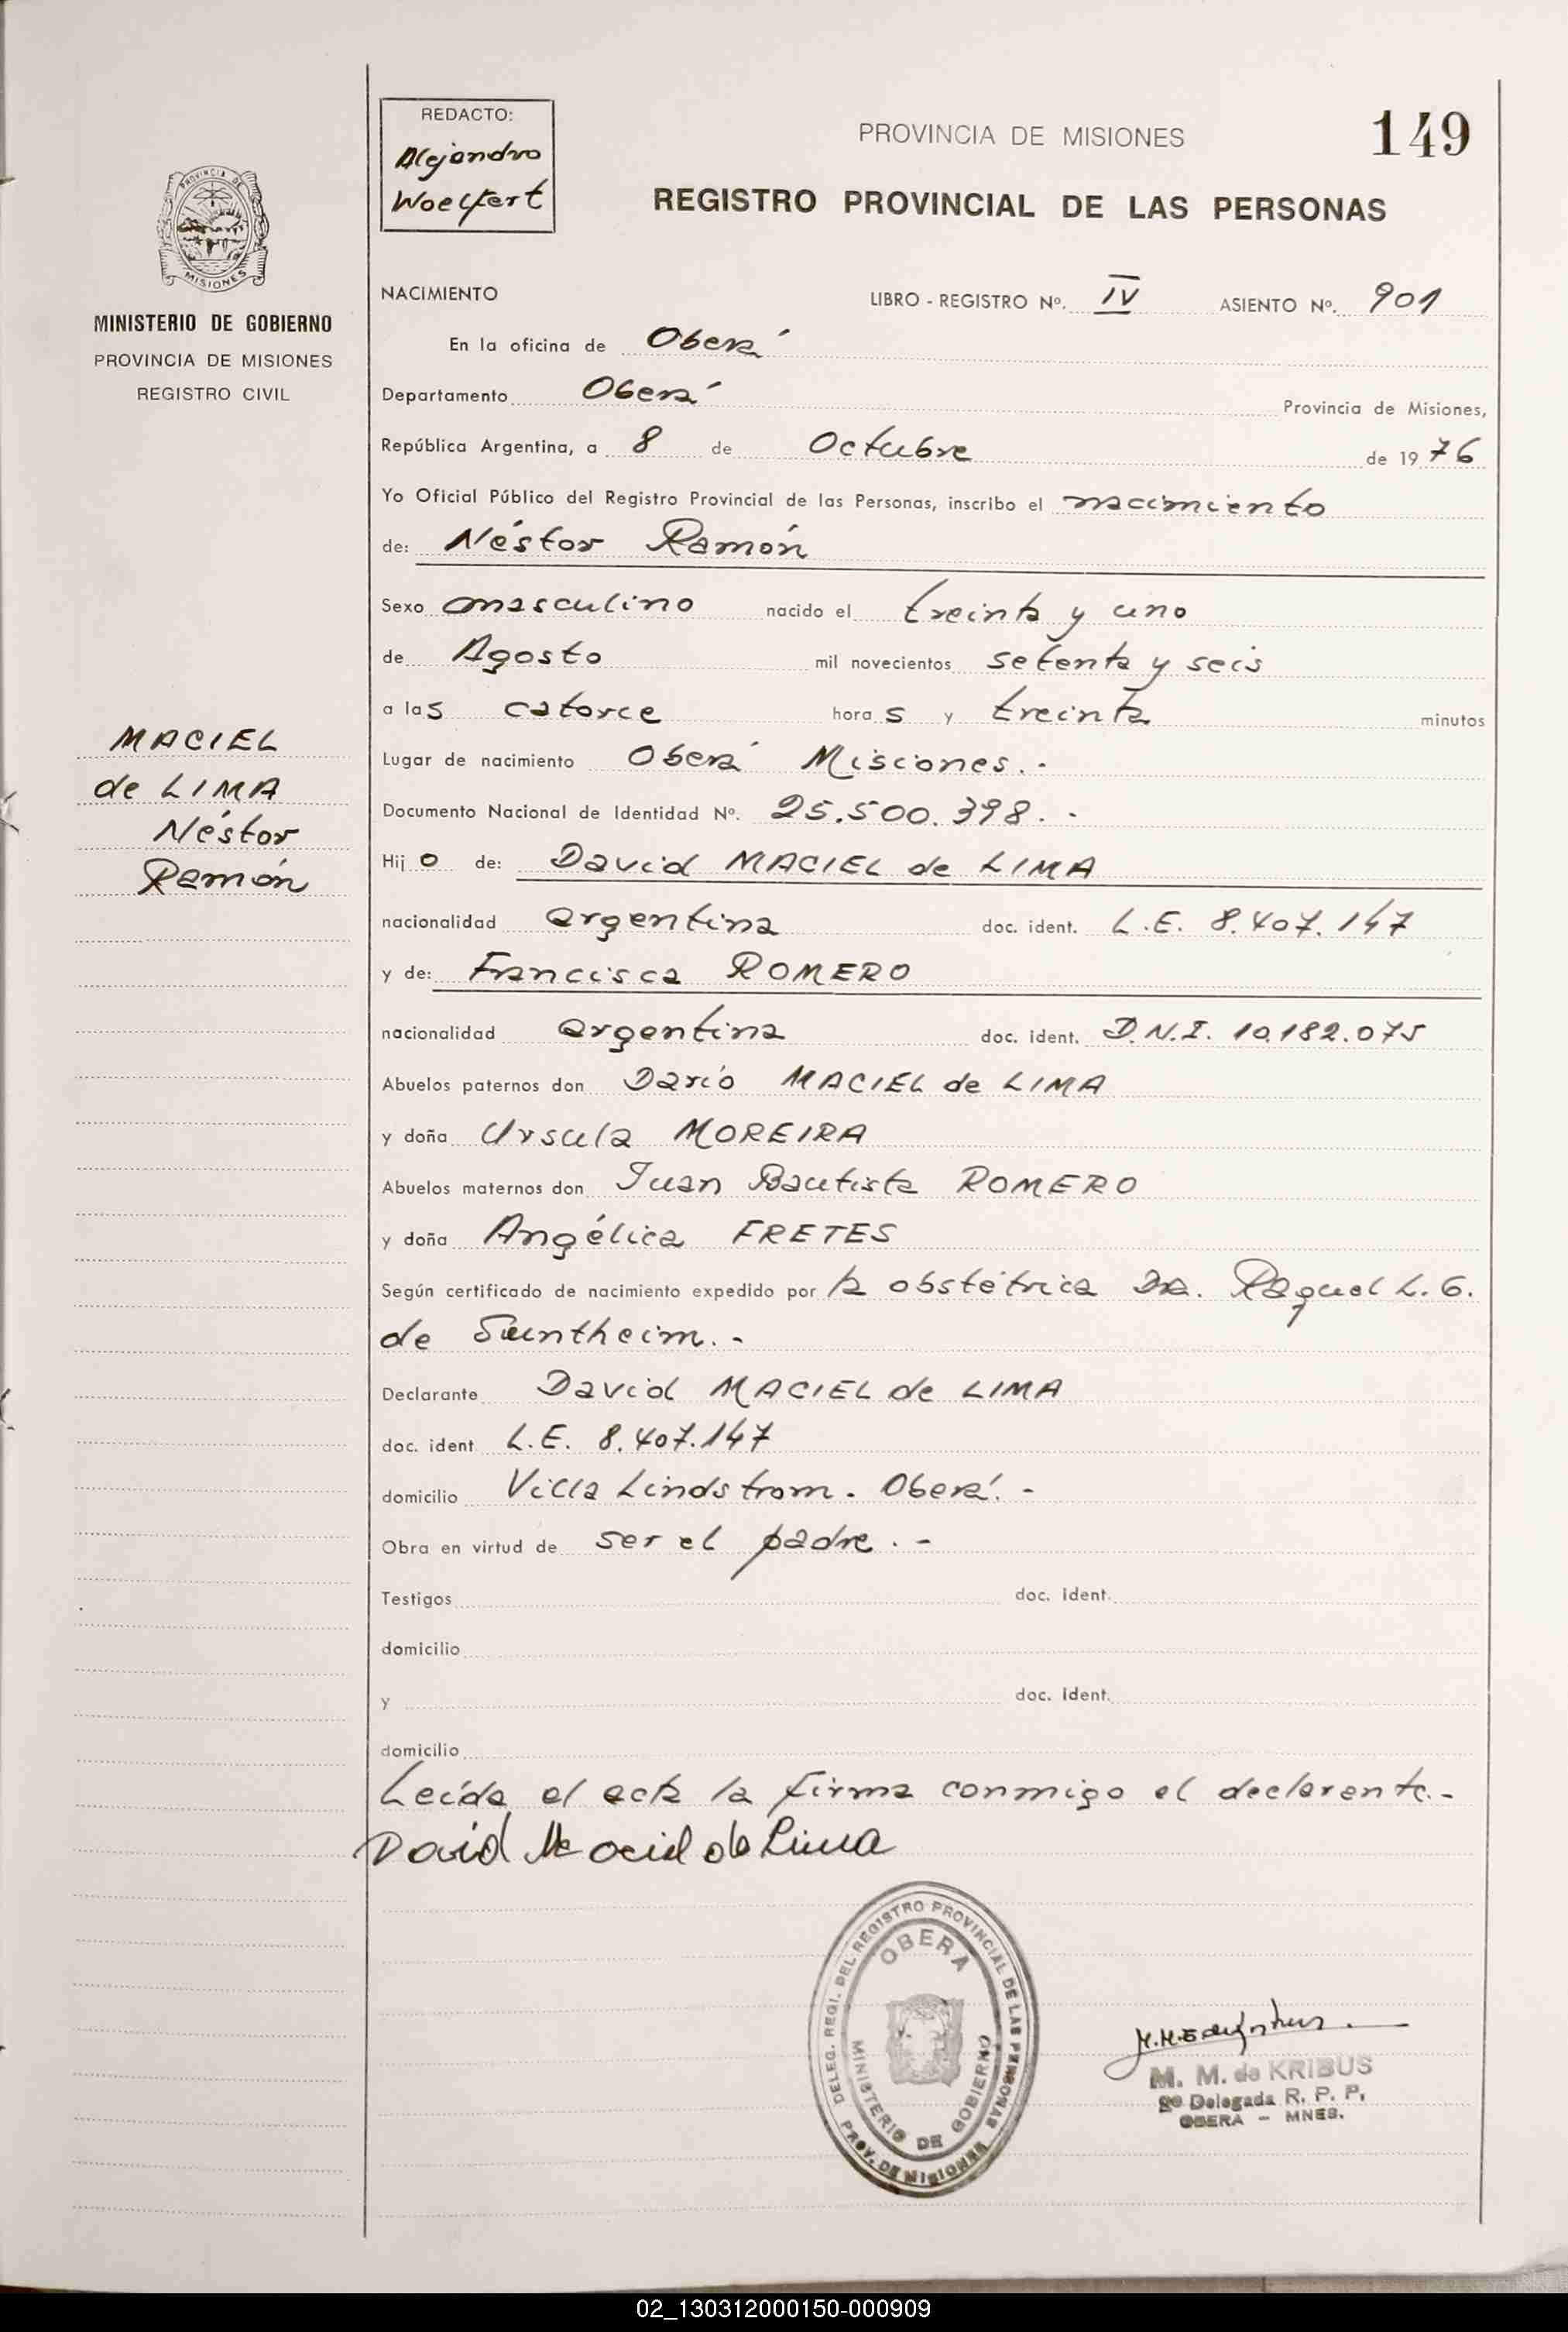 REDACTO:
Alejandro
Woelfert
PROVINCIA DE MISIONES
149
REGISTRO PROVINCIAL DE LAS PERSONAS
PROVINCIA DE
MISIONES
MINISTERIO DE GOBIERNO
PROVINCIA DE MISIONES
REGISTRO CIVIL
NACIMIENTO LIBRO - REGISTRO Nº. IV ASIENTO Nº. 901
En la oficina de Oberá
Departamento Oberá Provincia de Misiones,
República Argentina, a 8 de Octubre de 1976
Yo Oficial Público del Registro Provincial de las Personas, inscribo el nacimiento
de: Néstor Ramón
Sexo masculino nacido el treinta y uno
de Agosto mil novecientos setenta y seis
a las catorce horas y treinta minutos
MACIEL
de LIMA
Néstor
Ramón
Lugar de nacimiento Oberá Misiones.-
Documento Nacional de Identidad Nº. 25.500.398.-
Hijo de: David MACIEL de LIMA
nacionalidad argentina doc. ident. L.E. 8.407.147
y de: Francisca ROMERO
nacionalidad argentina doc. ident. D.N.I. 10.182.075
Abuelos paternos don Darío MACIEL de LIMA
y doña Ursula MOREIRA
Abuelos maternos don Juan Bautista ROMERO
y doña Angélica FRETES
Según certificado de nacimiento expedido por la obstétrica Dra. Raquel L. G.
de Suntheim.-
Declarante David MACIEL de LIMA
doc. ident L.E. 8.407.147
domicilio Villa Lindstrom. Oberá.-
Obra en virtud de ser el padre.-
Testigos doc. ident.
domicilio
y doc. ident.
domicilio
Leída el acta la firma conmigo el declarante.-
David Maciel de Lima
DELEG. REGI. DEL REGISTRO PROVINCIAL DE LAS PERSONAS
OBERA
MINISTERIO DE GOBIERNO
PROV. DE MISIONES
M. M. de KRIBUS
Delegada R. P. P.
OBERA - MNES.
02_130312000150-000909